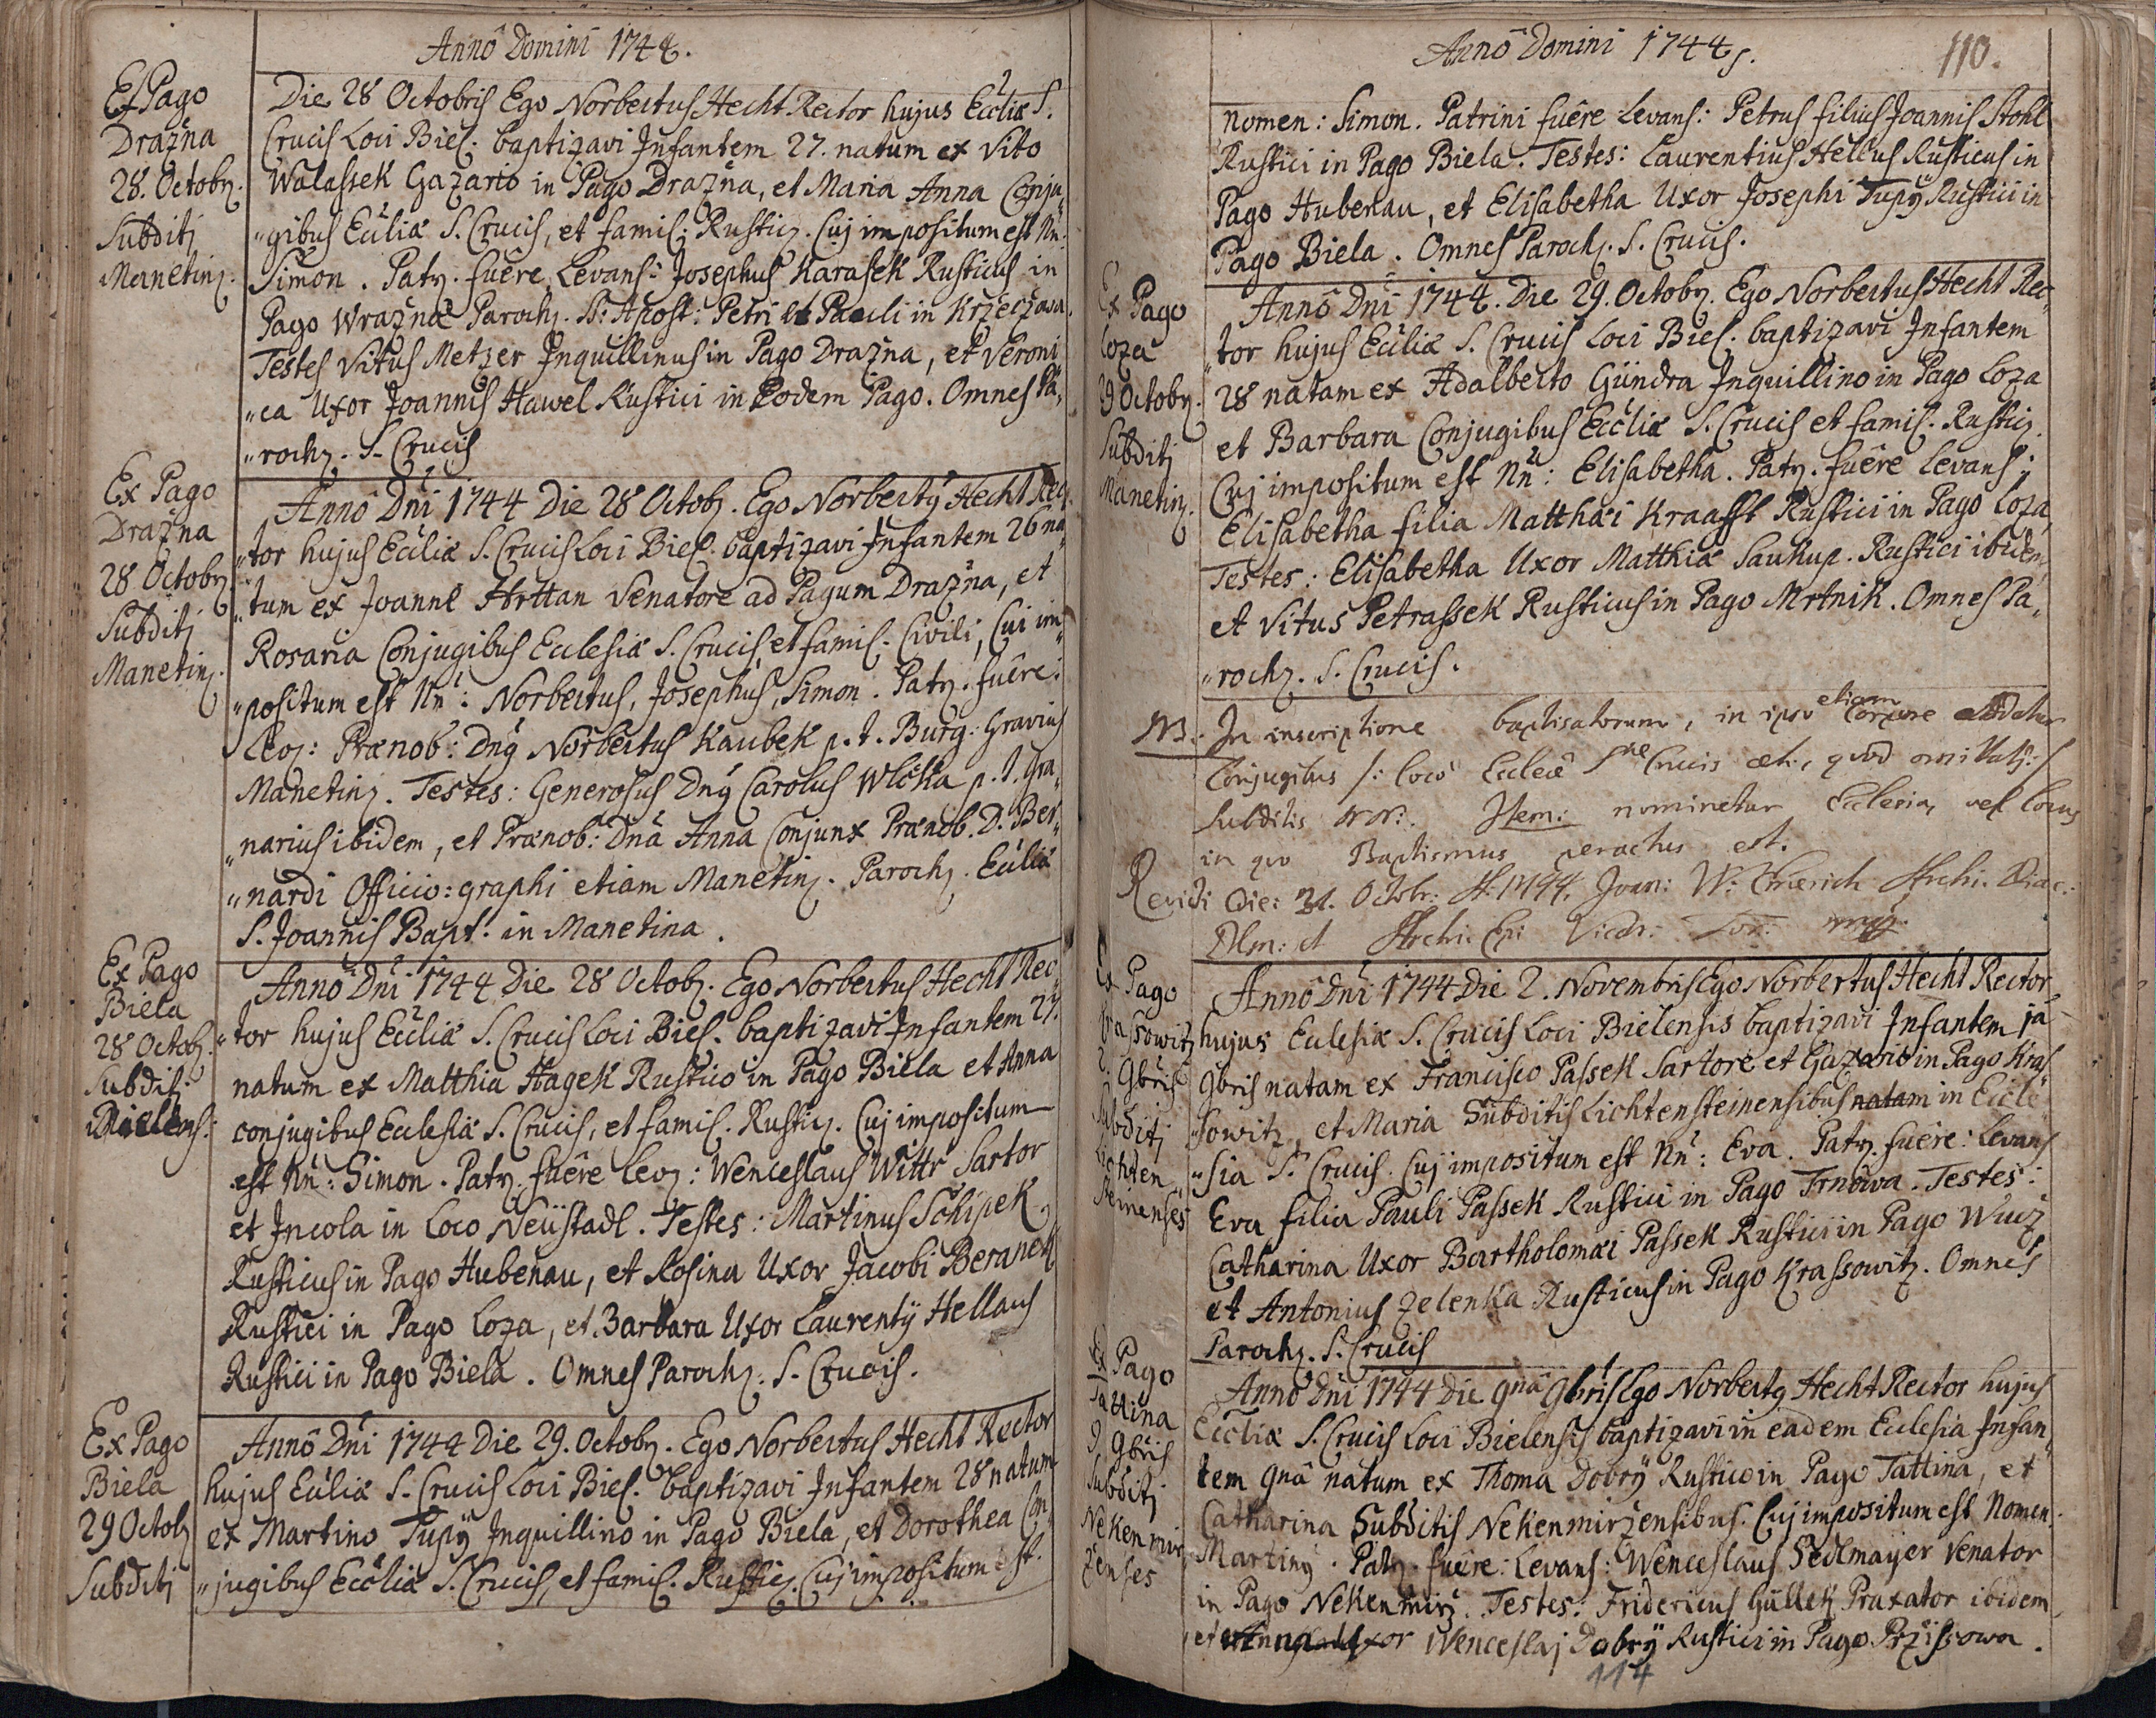 Annô Domini 1744.
Ex Pago
Drazna
28. Octobr.
Subditj
Manetinˀ.
Die 28 Octobris Ego Norbertus Hecht Rector hujus Eccliæ S.
Crucis Loci Biel. baptizavi Infantem 27. natum ex Vito
Walassek Gazario in Pago Drazna, et Maria Anna Conju„
„gibus Eccliæ S. Crucis, et famil: Rusticˀ. Cuj impositum est Nn:
Simon. Patrˀ. fuêre Levans: Josephus Karasek Rusticus in
Pago Wrazna Parochˀ. SS: Apost: Petri et Pauli in Krzeczasa.
Testes Vitus Metzer Inquillinus in Pago Drazna, et Veroni
„ca Uxor Joannis Hawel Rustici in Eodem Pago. Omnes Pa„
„rochˀ. S. Crucis
Ex Pago
Drazna
28 Octobr
Subditj
Manetinˀ.
Annô Dni 1744 Die 28 Octobˀ. Ego Norbertꝰ Hecht Rec„
„tor hujus Eccliæ S. Crucis Loci Biel. baptizavi Infantem 26 na„
„tum ex Joanne Hrttan Venatore ad Pagum Drazna, et
Rosaria Conjugibus Ecclesiæ S. Crucis et famil. Civili, Cui im„
„positum est Nn: Norbertus, Josephus, Simon. Patrˀ. fuêre:
Levˀ: Prænob: Dnꝰ Norbertus Kaubek p. t. Burg: Gravius
Manetinˀ. Testes: Generosus Dnꝰ Carolus Wlcka p. t. Gra„
„narius ibidem, et Prænob: Dnâ Anna Conjunx Prænob. D. Ber„
„nardi Officio: graphi etiam Manetinˀ. Parochˀ. Eccliæ
S. Joannis Bapt. in Manetina.
Ex Pago
Biela
28 Octobˀ.
Subditj
Bielens:
Annô Dni 1744 Die 28 Octobˀ. Ego Norbertus Hecht Rec„
„tor hujus Eccliæ S. Crucis Loci Biel. baptizavi Infantem 27.
natum ex Matthia Hagek Rustico in Pago Biela et Anna
conjugibus Ecclesiæ S. Crucis, et famil. Rusticˀ. Cuj impositum
est Nn: Simon. Patrˀ. fuêre Levˀ: Wenceslaus Wittr Sartor
et Incola in Loco Neüstadl. Testes: Martinus Schipek,
Rusticus in Pago Hubenau, et Rosina Uxor Jacobi Beranek
Rustici in Pago Loza, et Barbara Uxor Laurentÿ Hellaus
Rustici in Pago Biela. Omnes Parochˀ. S. Crucis.
Ex Pago
Biela
29 Octobˀ
Subditj
Annô Dni 1744 Die 29. Octobr. Ego Norbertus Hecht Rector
hujus Eccliæ S. Crucis Loci Biel. baptizavi Infantem 28 natum
ex Martino Tupÿ Inquillino in Pago Biela, et Dorothea Con„
„jugibus Eccliæ S. Crucis, et famil. Rusticˀ. Cuj impositum est.
Annô Domini 1744.
110.
Nomen: Simon. Patrini fuêre Levans: Petrus filius Joannis Stohl
Rustici in Pago Biela. Testes: Laurentius Hellus Rusticus in
Pago Hubenau, et Elisabetha Uxor Josephi Tupÿ Rustici in
Pago Biela. Omnes Parochˀ. S. Crucis.
Ex Pago
Loza
29 Octobr.
Subditj
Manetinˀ.
Annô Dni 1744. Die 29. Octobr. Ego Norbertus Hecht Rec„
„tor hujus Eccliæ S. Crucis Loci Biel. baptizavi Infantem
28 natam ex Adalberto Gündra Inquillino in Pago Loza
et Barbara Conjugibus Eccliæ S. Crucis et famil. Rusticˀ.
Cuj impositum est Nn: Elisabetha. Patrˀ. fuêre Levans:
Elisabetha filia Matthæi Kraafft Rustici in Pago Loza,
Testes: Elisabetha Uxor Matthiæ Saukup. Rustici ibidem,
et Vitus Petrassek Rusticus in Pago Mrtnik. Omnes Pa„
„rochˀ. S. Crucis.
NB. In inscriptione baptisatorum, in ipso etiam Corpore addatur
Conjugibus /: loco Eccleæ Sae Crucis etc, quod omittatˀ:/
subditis NN: Item: nominetur Ecclesia, vel Locus
in quo Baptismus peractus est.
Revidi Die: 31. Octobr: A: 1744. Joan: W: Archi. Diac:
et Archi. Epi Vicar:
Ex Pago
Krassowitz
2. 9bris
Subditj
Lichten„
steinenses
Annô Dni 1744 Die 2. Novembris Ego Norbertus Hecht Rector
hujus Ecclesiæ S. Crucis Loci Bielensis baptizavi Infantem 1â
9bris natam ex Francisco Passek Sartore et Gazario in Pago Kras„
„sowitz, et Maria Subditis Lichtensteinensibus natam in Eccle„
„sia S. Crucis. Cuj impositum est Nn: Eva. Patrˀ. fuêre: Levans
Eva filia Pauli Passek Rustici in Pago Trnowa. Testes:
Catharina Uxor Bartholomæi Passek Rustici in Pago Wucz
et Antonius Zelenka Rusticus in Pago Krassowitz. Omnes
Parochˀ. S. Crucis
Ex Pago
Tattina
9. 9bris
Subditj
Nekenmir„
zenses
Annô Dni 1744 Die 9nâ 9bris Ego Norbertꝰ Hecht Rector hujus
Eccliæ S. Crucis Loci Bielensis baptizavi in eadem Ecclesia Infan„
tem 9nâ natum ex Thoma Dobrÿ Rustico in Pago Tattina, et
Catharina Subditis Nekenmirzensibus. Cuj impositum est Nomen:
Martinꝰ. Patrˀ. fuêre: Levans: Wenceslaus Sedlmayer Venator
in Pago Nekenmirz. Testes: Fridericus Gullek Praxator ibidem,
et Anna Uxor Wenceslaj Dobrÿ Rustici in Pago Przissowa.
114